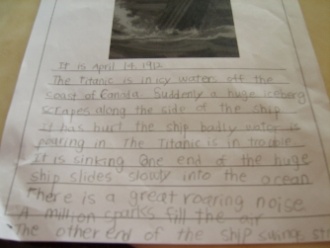 It is April 14, 1912
The Titanic is in icy waters off the
coast of Canada. Suddenly a huge iceberg
scrapes along the side of the ship
It has hurt the ship badly water is
pouring in The Titanic is in trouble.
It is sinking One end of the huge
ship slides slowly into the ocean
There is a great roaring noise
A million sparks fill the air
The other end of the ship swings